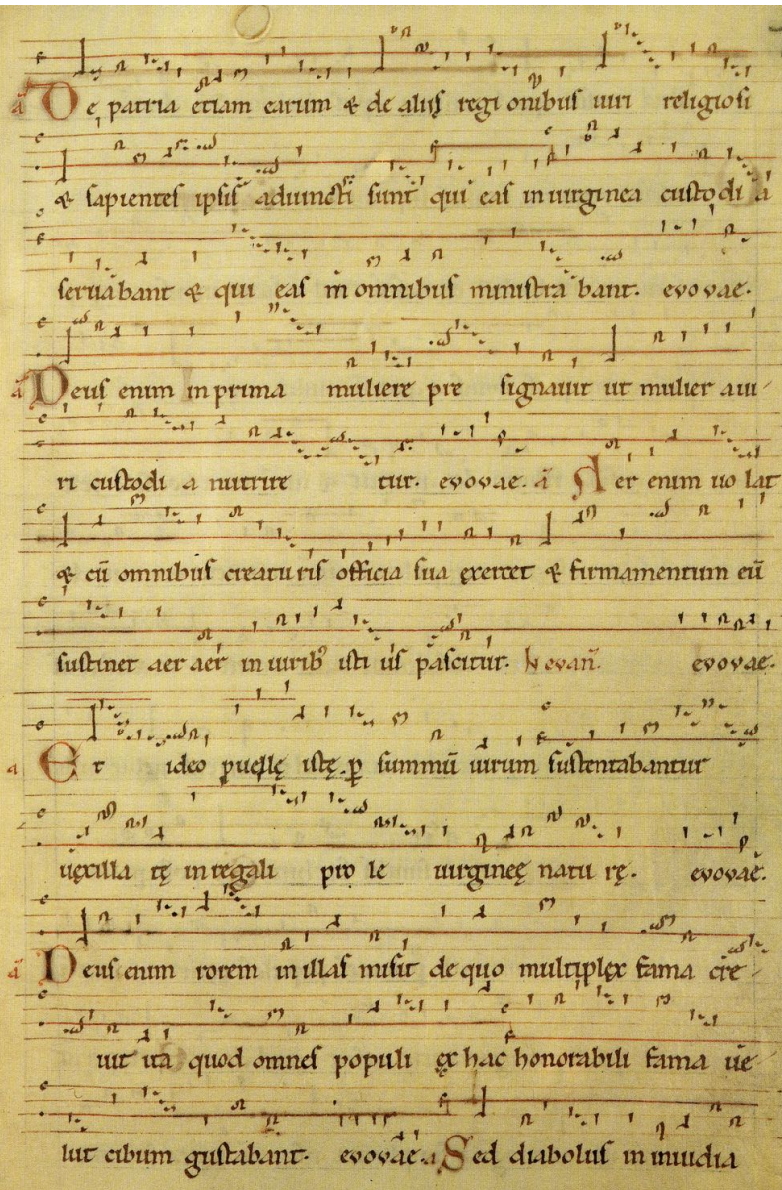 ā De patria etiam earum & de aliis regionibus uiri religiosi
& sapientes ipsis adiuncti sunt qui eas in uirginea custodia
seruabant & qui eas in omnibus ministrabant. evovae.
ā Deus enim in prima muliere presignauit ut mulier a ui
ri custodia nutrire tur. evovae. ā Aer enim uolat
& cū omnibus creaturis officia sua exercet & firmamentum eū
sustinet aer aer in uirib istius pascitur. evovae.
a Et ideo puellę istę p summū uirum sustentabantur
uexillatę in regali prole uirgineę naturę. evovae.
ā Deus enim rorem in illas misit de quo multiplex fama cre
uit ita quod omnes populi ex hac honorabili fama ue
lut cibum gustabant. evovae. a Sed diabolus in inuidia